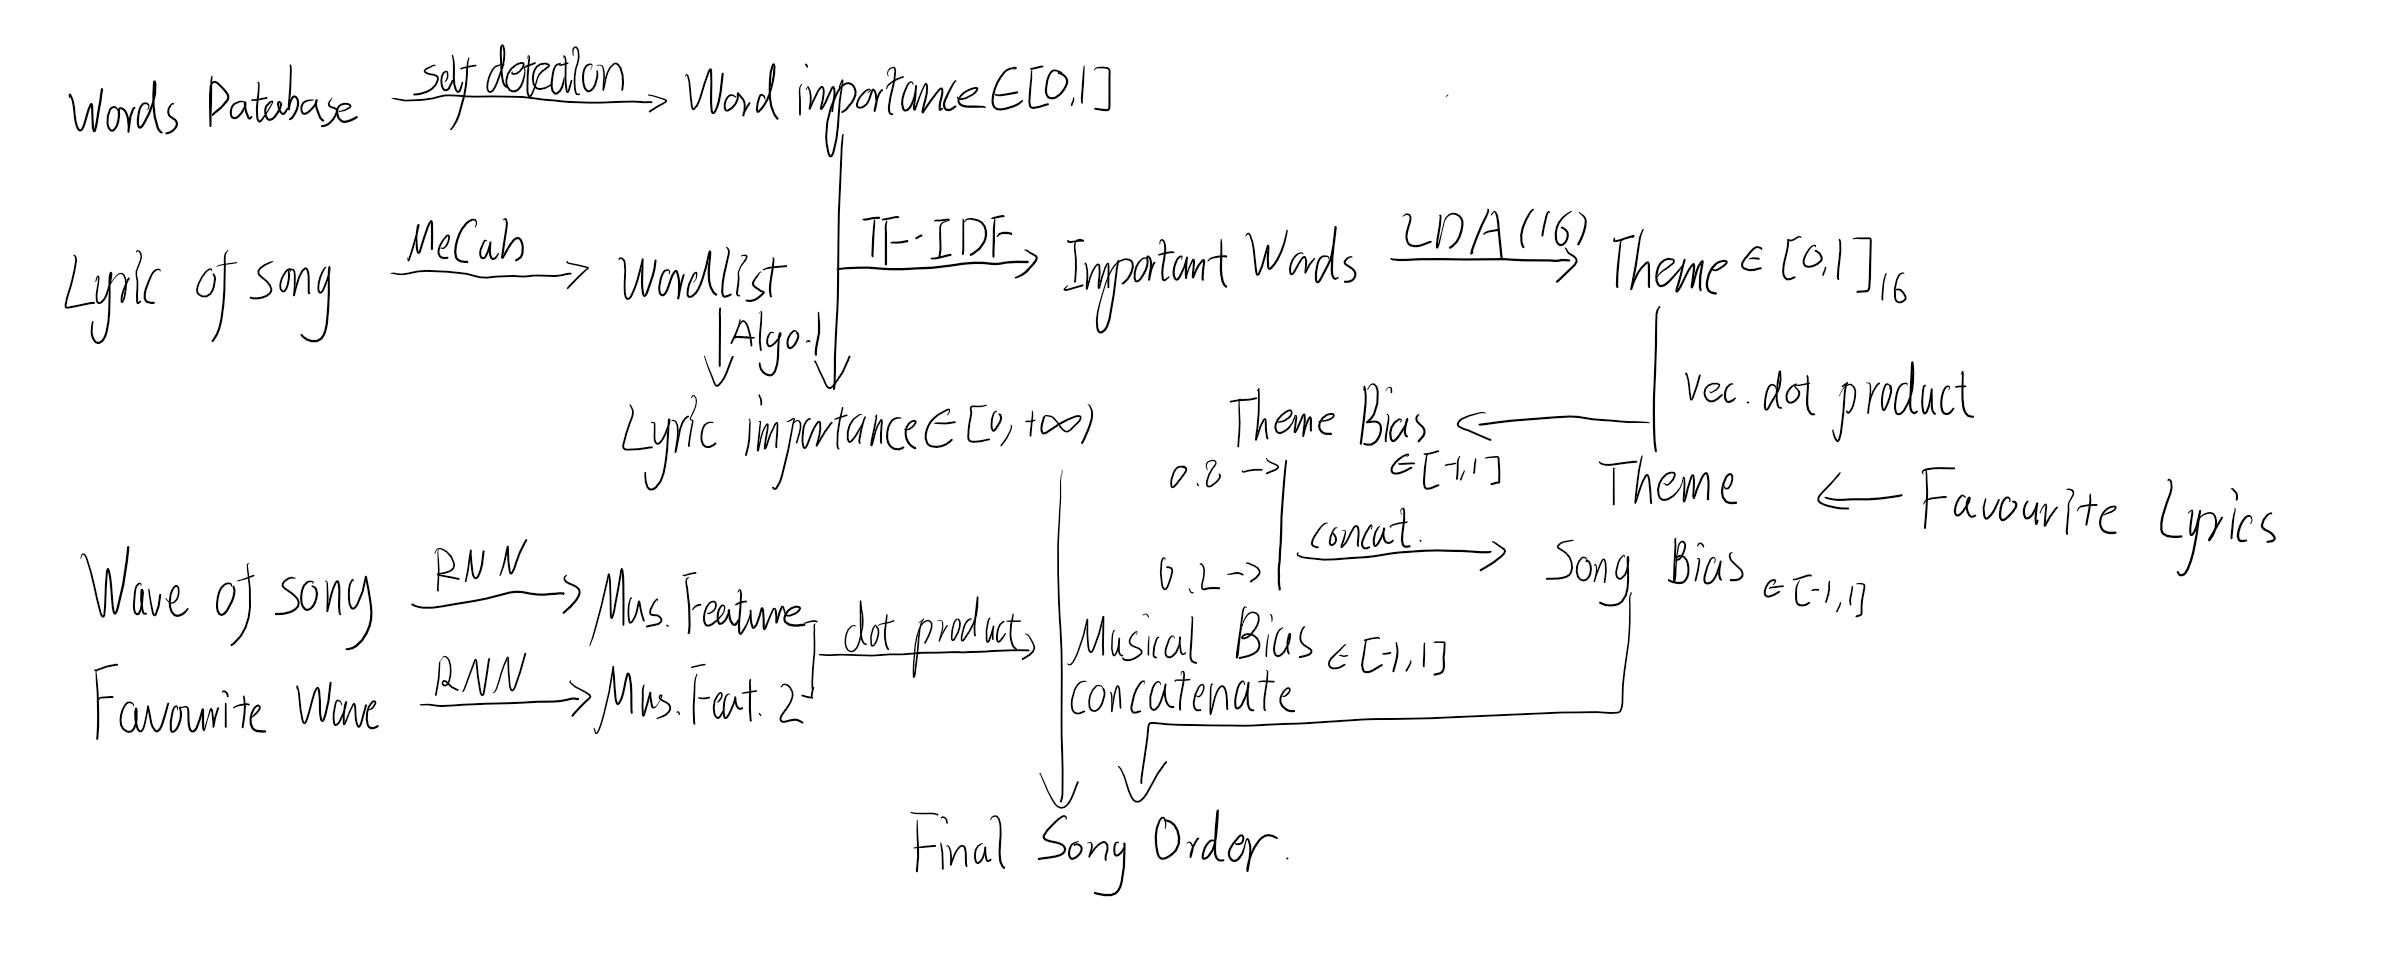 Words Database self detection Word importance ∈ [0,1]
Lyric of song MeCab Wordlist TF-IDF Important Words LDA (16) Theme ∈ [0,1]16
Algo.1
vec. dot product
Lyric importance ∈ [0, +∞) Theme Bias
∈ [-1,1]
0.8
Theme Favourite Lyrics
concat.
0.2 Song Bias ∈ [-1,1]
Wave of song RNN Mus. Feature
dot product Musical Bias ∈ [-1,1]
Favourite Wave RNN Mus. Feat. 2 concatenate
Final Song Order.